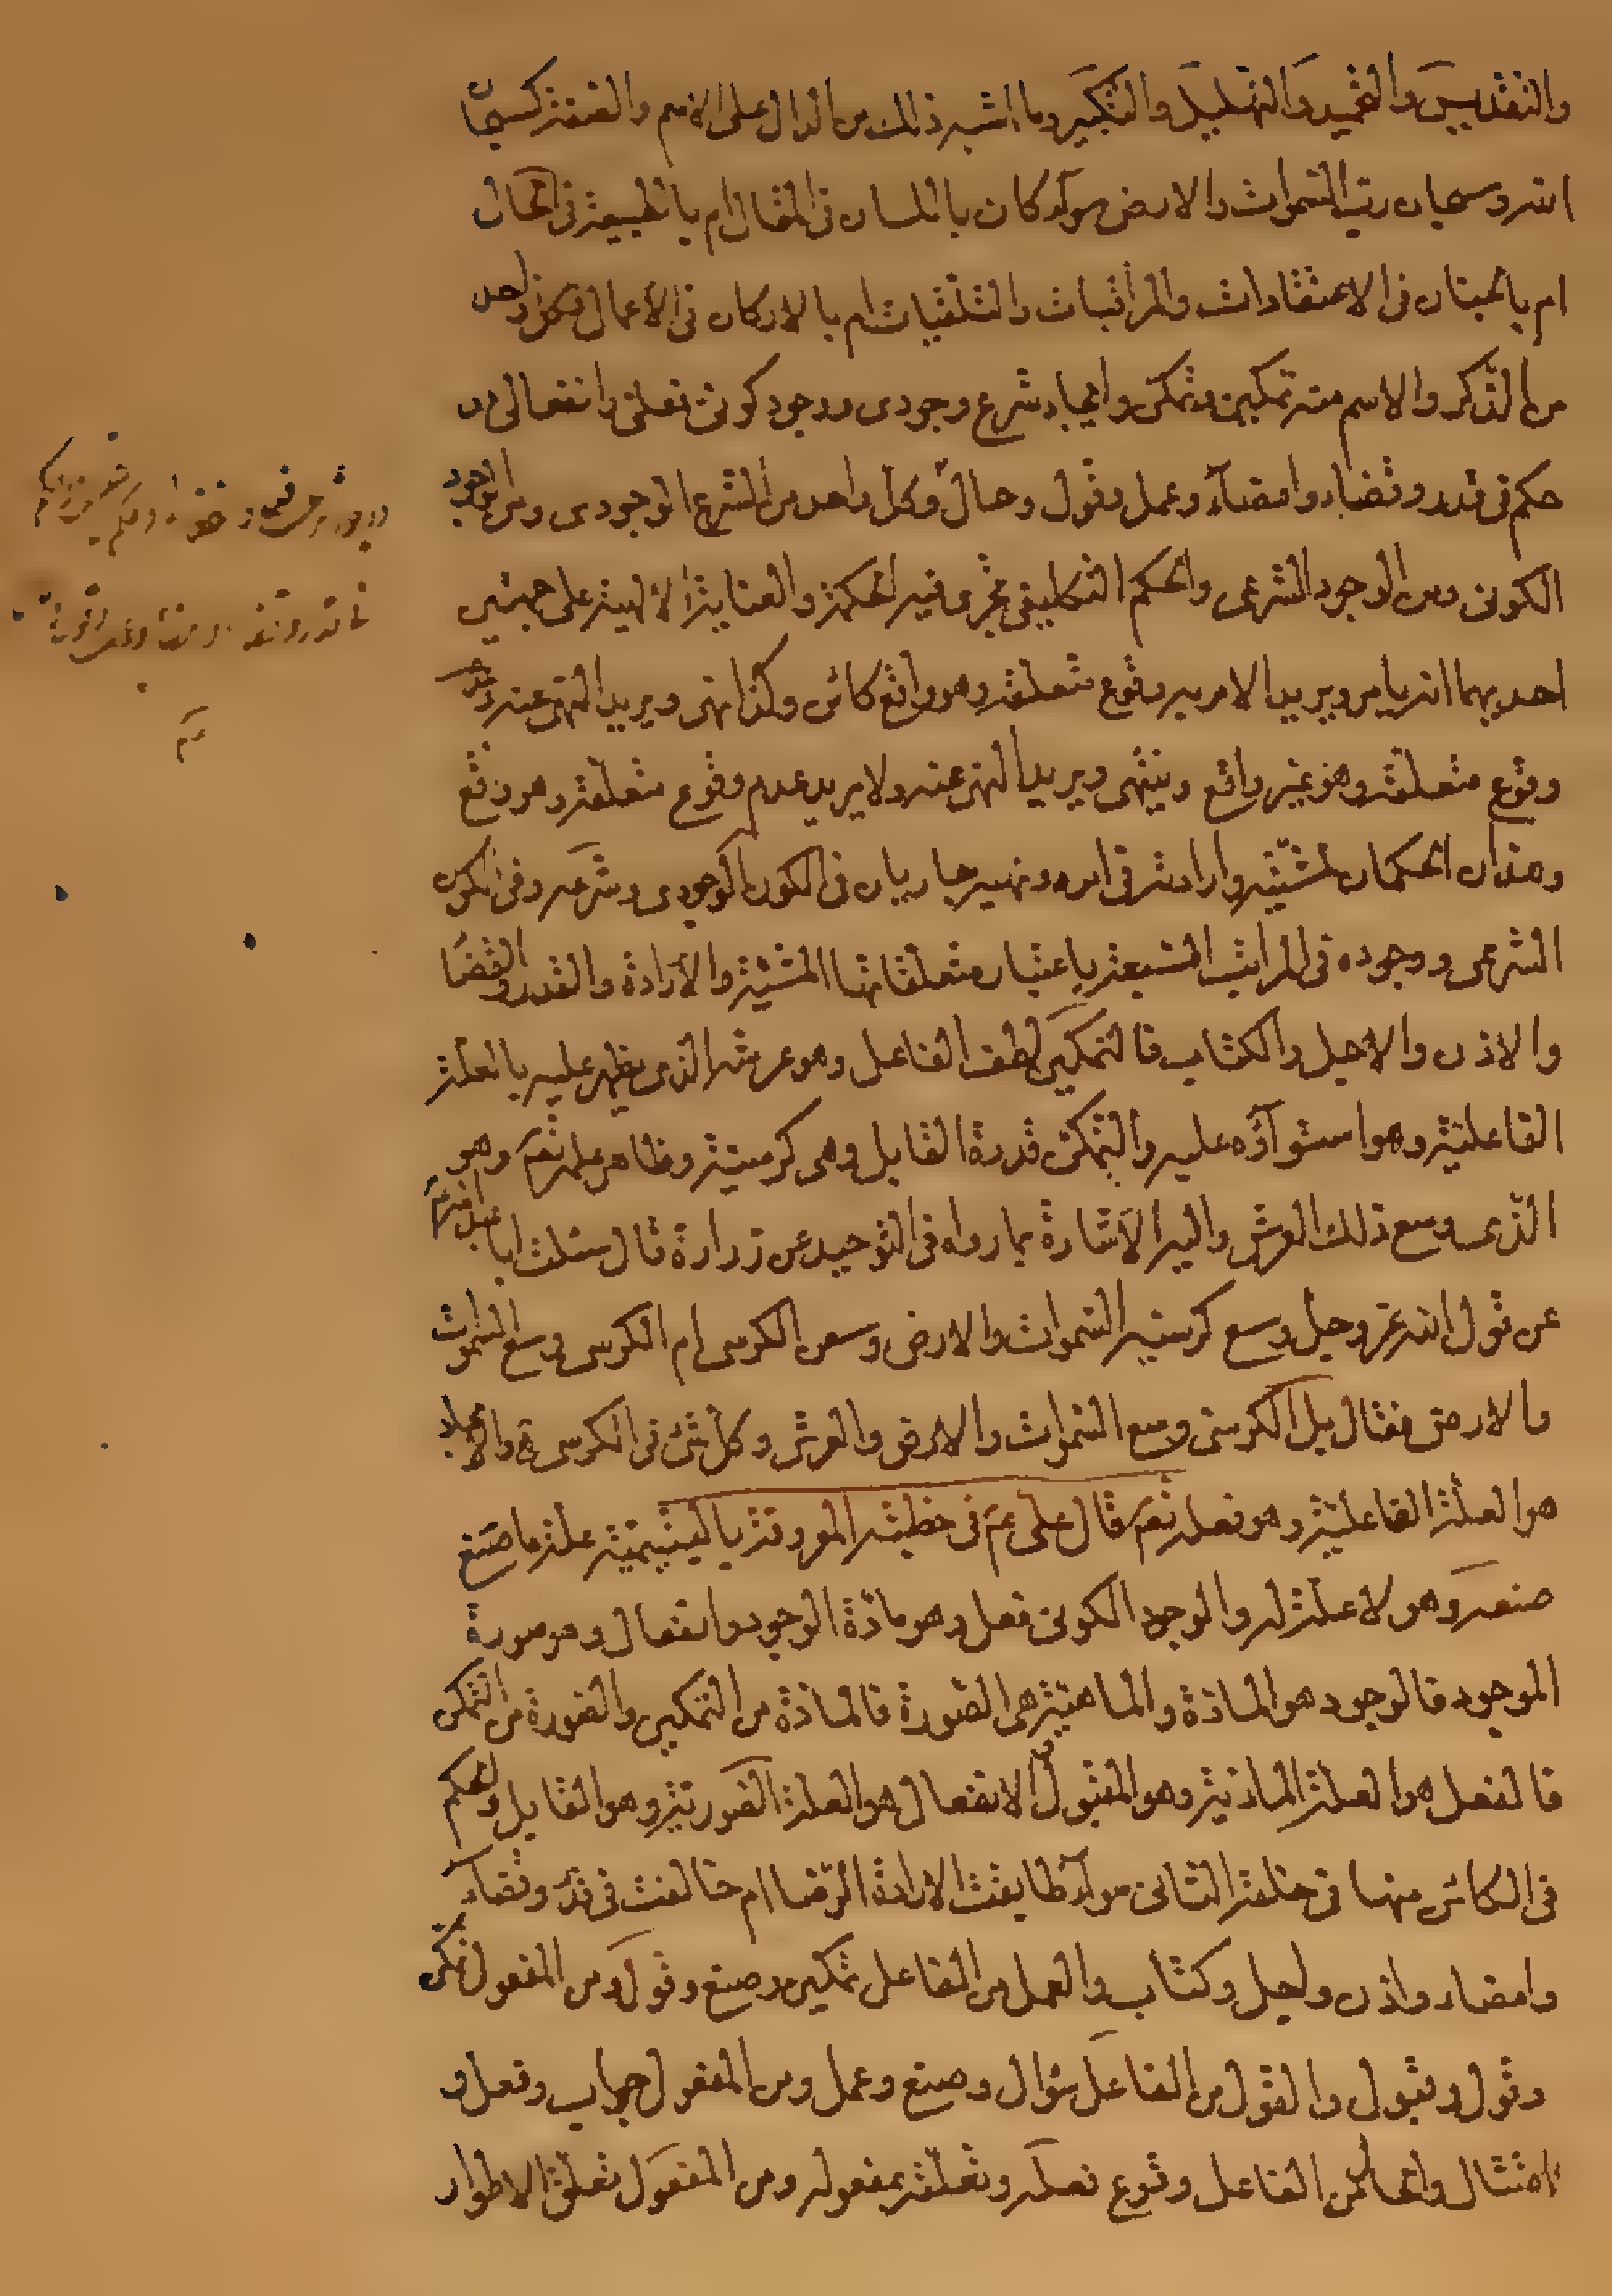 والتقديس والتحميد والتهليل والتكبير وما اشبه ذلك من الدال على الاسم والصفة كسبحان
الله وسبحان ربّ السّموات والارض سوآء كان باللسان فى المقال ام بالطبيعة فى الحال
ام بالجنان فى الاعتقادات والمراقبات والتلقيات ام بالاركان فى الأعمال فكل واحد
من الذّكر والاسم منه تمكين وتمكّن وايجاد شرع وجودى ووجود كونى فعلىّ وانفعالى من
حكم فى قدر وقضاء وامضآء وعمل وقول وحال وكلّ واحد من الشرع الوجودى ومن الوجود
الكونى ومن الوجود الشرعى والحكم التكليفى تجرى فيه الحكمة والعناية الالهية على جهتين
احديهما انه يامر ويريد الامر به وقوع متعلقه وهو واقع كائن وكذا نهى ويريد النهى عنه وعدم
وقوع متعلقه وهو غير واقع وينهى ويريد النهى عنه ولا يريد عدم وقوع متعلقه وهو واقع
وهذان الحكمان لمشيّته وارادته فى امره ونهيه جاريان فى الكون الوجودى وشرعه وفى الكون
الشرعى ووجوده فى المراتب السّبعة باعتبار متعلقاتها المشيّة والأرادة والقدر والقضا
والاذن والاجل والكتاب فالتمكين لطف الفاعل وهو عرشه الذى يظهر عليه بالعلّة
الفاعليّة وهو استوآؤه عليه والتمكّن قدرة القابل وهى كرسيّه وظاهر علمه نعم وهو
الّذى وسع ذلك العرش واليه الأشارة بما رواه فى التوحيد عن زرارة قال سئلت ابا عبد الله
عن قول الله عزّ وجلّ وسع كرسيّه السّموات والارض وسعن الكرسى ام الكرسى وسع السّموات
والارض فقال بل الكرسىّ وسع السّموات والارض والعرش وكلّ شئ فى الكرسى والايجاد
هو العلّة الفاعليّة وهو فعله نعم قال علىّ عم فى خطبته المروية باليتيميّة علّة ما صنع
صنعه وهو لا علّة له والوجود الكونى فعل وهو مادّة الوجود وانفعال وهو صورة
الموجود فالوجود هو المادّة والماهيّة هى الصّورة فالمادّة من التمكين والصّورة من التمكّن
فالفعل هو العلّة الماديّة وهو المقبول والانفعال هو العلّة الصّوريّة وهو القابل والحكم
فى الكائن منها فى خلقه الثانى سوآء طابقت الارادة الرّضا ام خالفت فى قدر وقضآء
وامضاء واذن واجل وكتاب والعمل من الفاعل تمكين وصنع وقول ومن المفعول تمكّن
وقول وقبول والقول من الفاعل سؤال وصنع وعمل ومن المفعول جواب وفعل و
امتثال والحال من الفاعل وقوع فعله وتعلّقه بمفعوله ومن المفعول تعلّق الاطوار